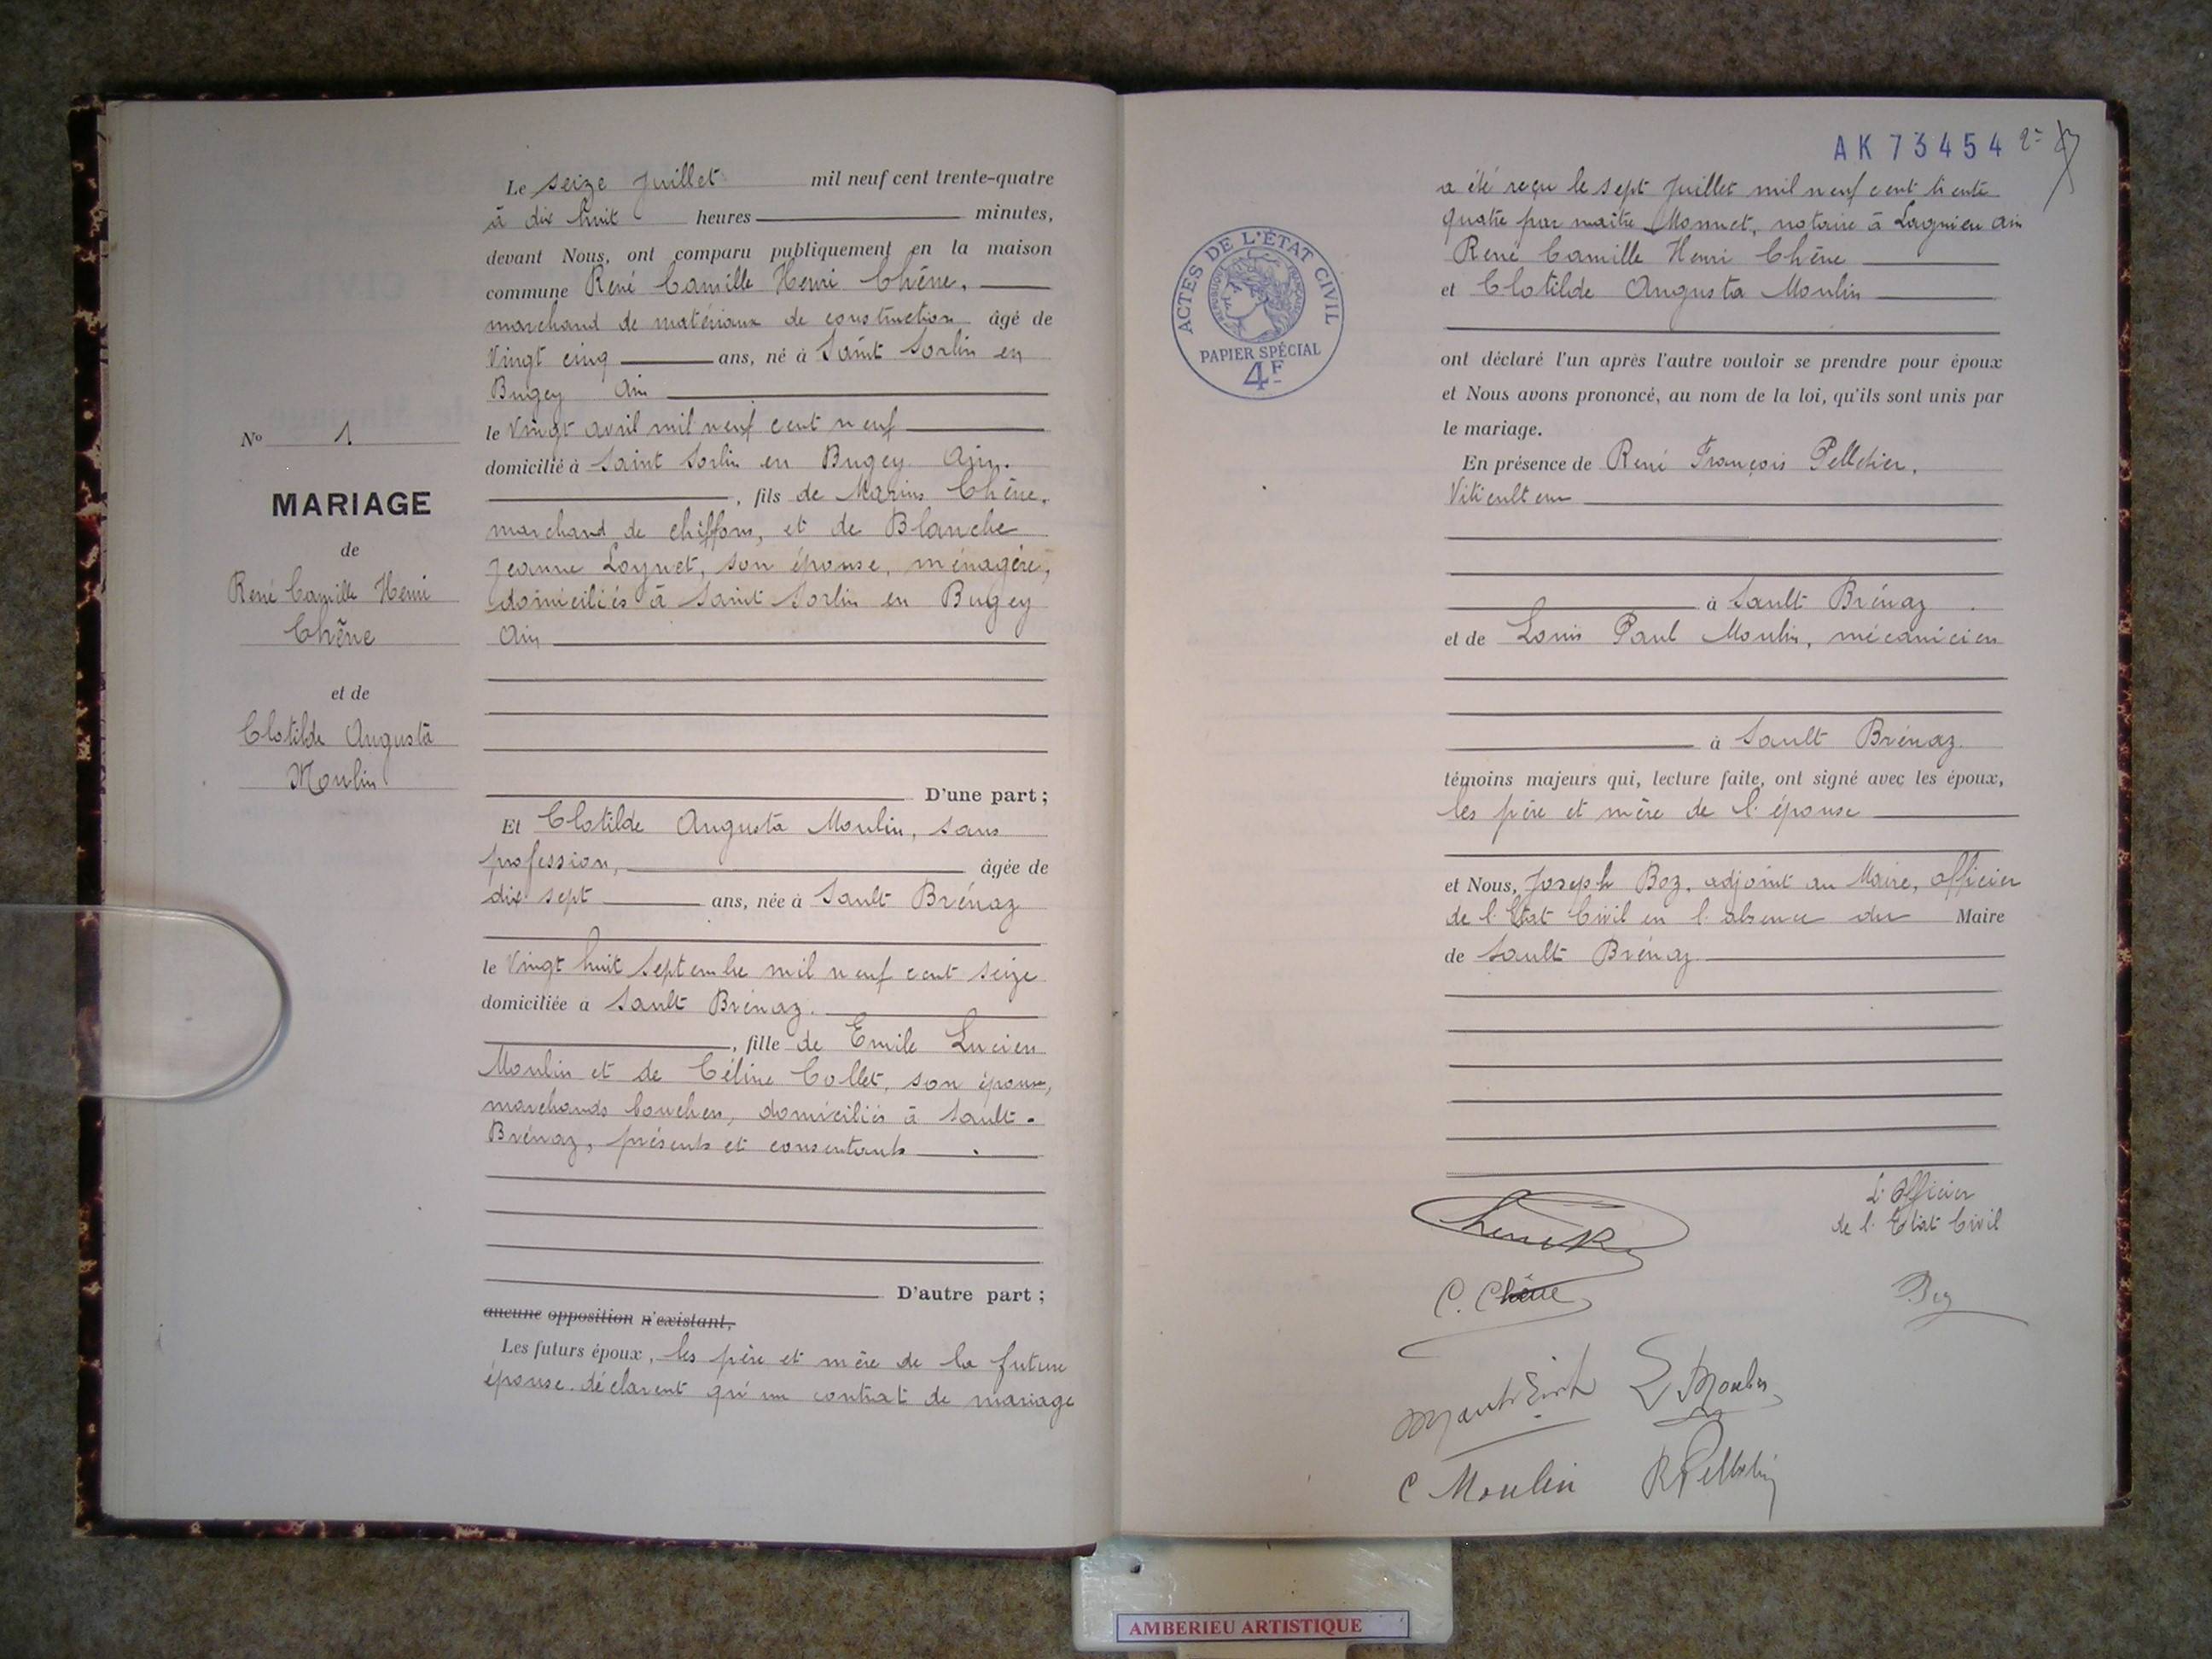 Le seize juillet mil neuf cent trente-quatre
à dix huit heures minutes,
devant Nous, ont comparu publiquement en la maison
commune René Camille Henri Chêne,
marchand de matériaux de construction âgé de
Vingt cinq ans, né à Saint Sorlin en
Bugey Ain
le Vingt avril mil neuf cent neuf
domicilié à Saint Sorlin en Bugey Ain.
, fils de Marius Chêne,
marchand de chiffons, et de Blanche
Jeanne Loynet, son épouse, ménagère,
domiciliés à Saint Sorlin en Bugey
Ain
D'une part ;
Et Clotilde Augusta Moulin, sans
profession, âgée de
dix sept ans, née à Sault Brénaz
le Vingt huit septembre mil neuf cent seize
domiciliée à Sault Brénaz.
, fille de Emile Lucien
Moulin et de Céline Collet, son épouse,
marchands bouchers, domiciliés à Sault-
Brénaz, présents et consentants
D'autre part ;
aucune opposition n'existant,
Les futurs époux, les père et mère de la future
épouse déclarent qu'un contrat de mariage
No 1
MARIAGE
de
René Camille Henri
Chêne
et de
Clotilde Augusta
Moulin
AK 73454
a été reçu le sept juillet mil neuf cent trente
quatre par maître Monnet, notaire à Lagnieu Ain
René Camille Henri Chêne
et Clotilde Augusta Moulin
ont déclaré l'un après l'autre vouloir se prendre pour époux
et Nous avons prononcé, au nom de la loi, qu'ils sont unis par
le mariage.
En présence de René François Pelletier,
Viticulteur
à Sault Brénaz
et de Louis Paul Moulin, mécanicien
à Sault Brénaz.
témoins majeurs qui, lecture faite, ont signé avec les époux,
les père et mère de l'épouse
et Nous, Joseph Boz, adjoint au Maire, officier
de l'Etat Civil en l'absence du Maire
de Sault Brénaz
ACTES DE L'ÉTAT CIVIL
RÉPUBLIQUE FRANÇAISE
PAPIER SPÉCIAL
4F
L'Officier
de l'Etat Civil
Chene R
C. Chêne
Boz
L Moulin
C Moulin
R Pelletier
AMBERIEU ARTISTIQUE